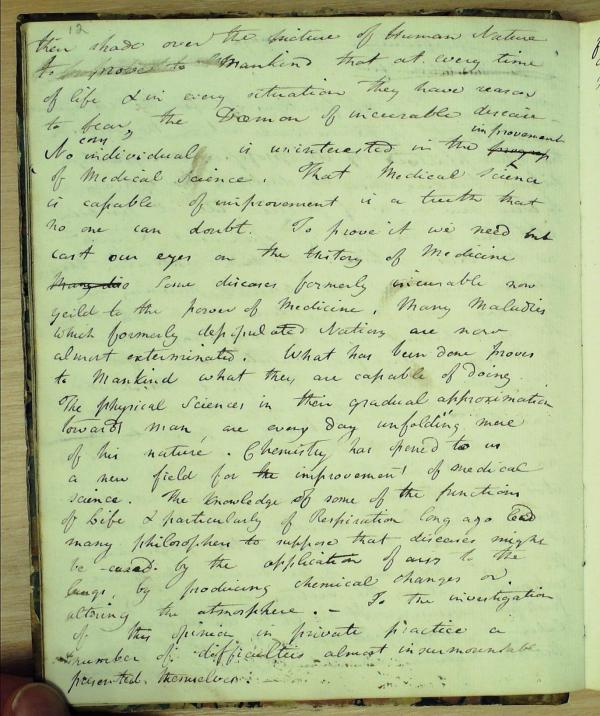 12
their shade over the picture of Human Nature
to prove to Mankind that at every time
of life & in every situation they have reason
to fear the Dæmon of incurable disease
No individual is uninterested in the improvement
of Medical Science. That Medical Science
is capable of improvement is a truth that
no one can doubt. To prove it we need but
cast our eyes on the History of Medicine
Some diseases formerly incurable now
yeild to the power of Medicine. Many Maladies
which formerly depopulated Nations are now
almost exterminated. What has been done proves
to Mankind what they are capable of doing.
The physical Sciences in their gradual approximation
towards man, are every day unfolding more
of his nature. Chemistry has opened to us
a new field for the improvement of medical
science. The knowledge of some of the functions
of Life & particularly of Respiration long ago led
many philosophers to suppose that diseases might
be cured by the application of airs to the
lungs, by producing chemical changes or
altering the atmosphere. – To the investigation
of this opinion in private practice a
number of difficulties almost insurmountable
presented themselves.